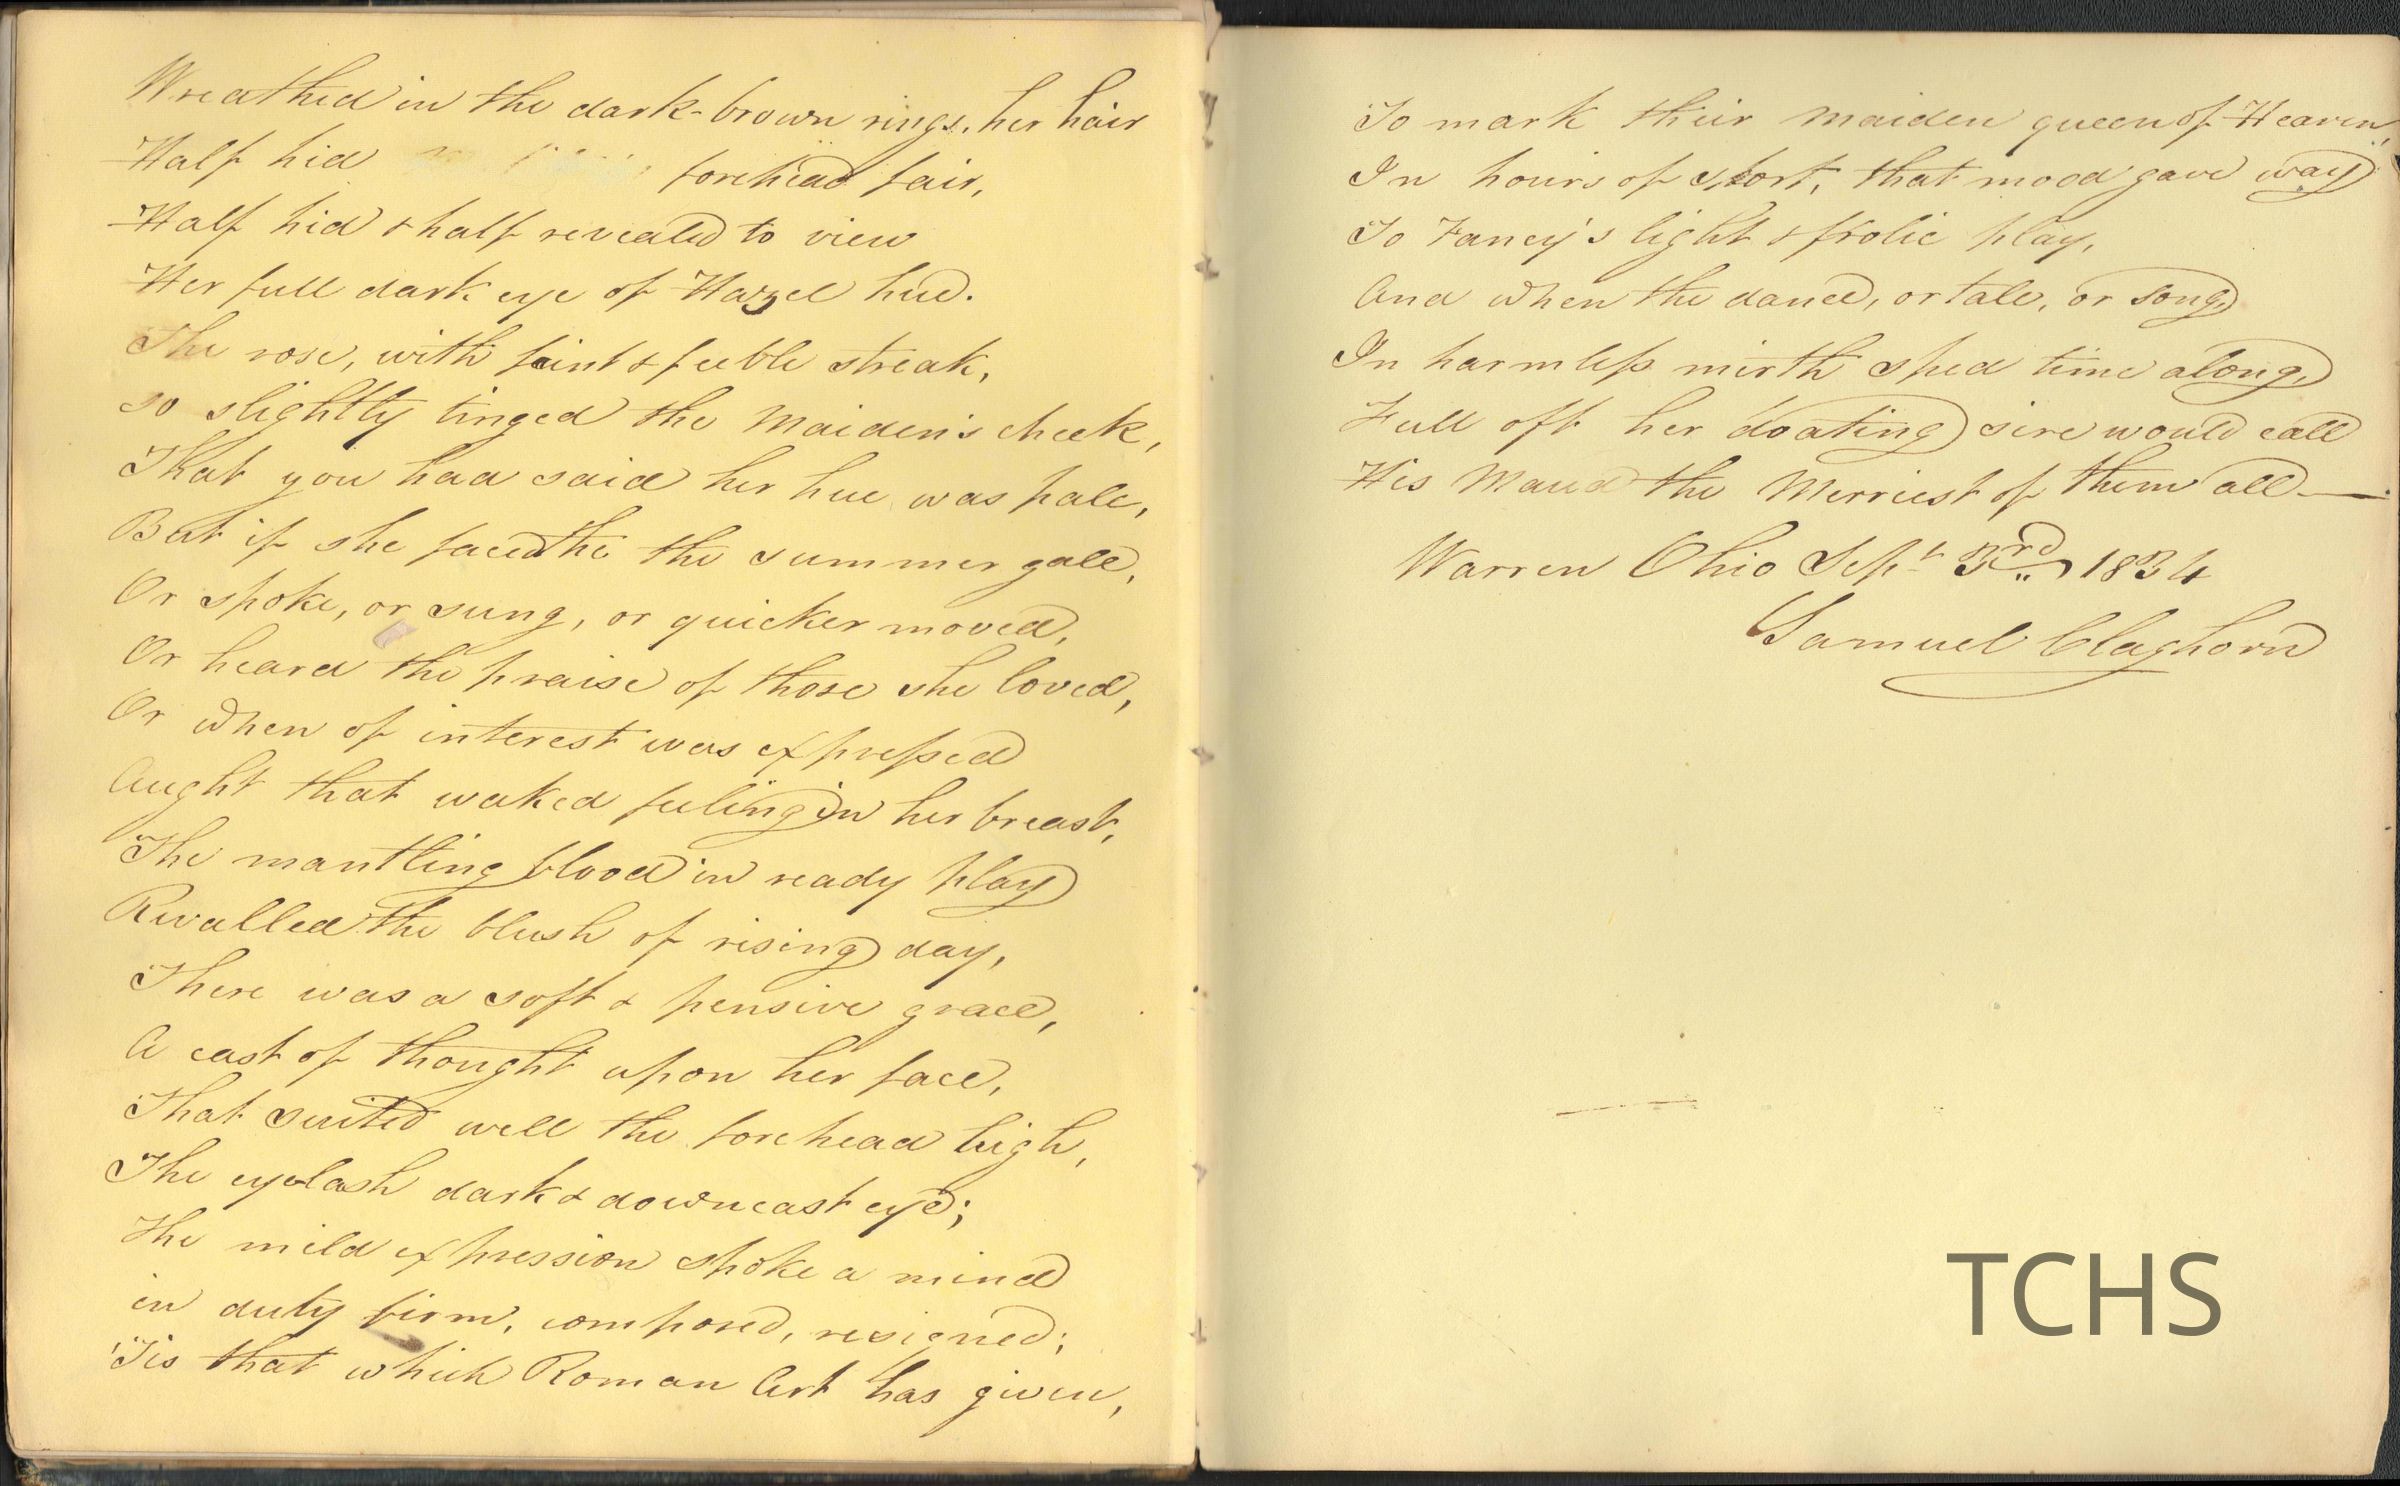 Wreathed in the dark-brown rings, her hair
Half hid forehead fair,
Half hid & half revealed to view
Her full dark eye of Hazel hue.
The rose, with faint & feeble streak,
so slightly tinged the Maiden's cheek,
That you had said her hue was pale,
But if she faced the the summer gale,
Or spoke, or sung, or quicker moved,
Or heard the praise of those she loved,
Or when of interest was expressed
Aught that waked feeling in her breast,
The mantling blood in ready play
Rivalled the blush of rising day,
There was a soft & pensive grace,
A cast of thought upon her face,
That suited well the forehead high,
The eyelash dark & downcast eye;
The mild expression spoke a mind
in duty firm, composed, resigned;
'Tis that which Roman Art has given,
To mark their Maiden queen of Heaven,
In hours of sport, that mood gave way
To Fancy's light & frolic play,
And when the dance, or tale, or song,
In harmless mirth sped time along,
Full oft her doating sire would call
His Maud the Merriest of them all —
Warren Ohio Sept 3rd 1834
Samuel Claghorn
TCHS